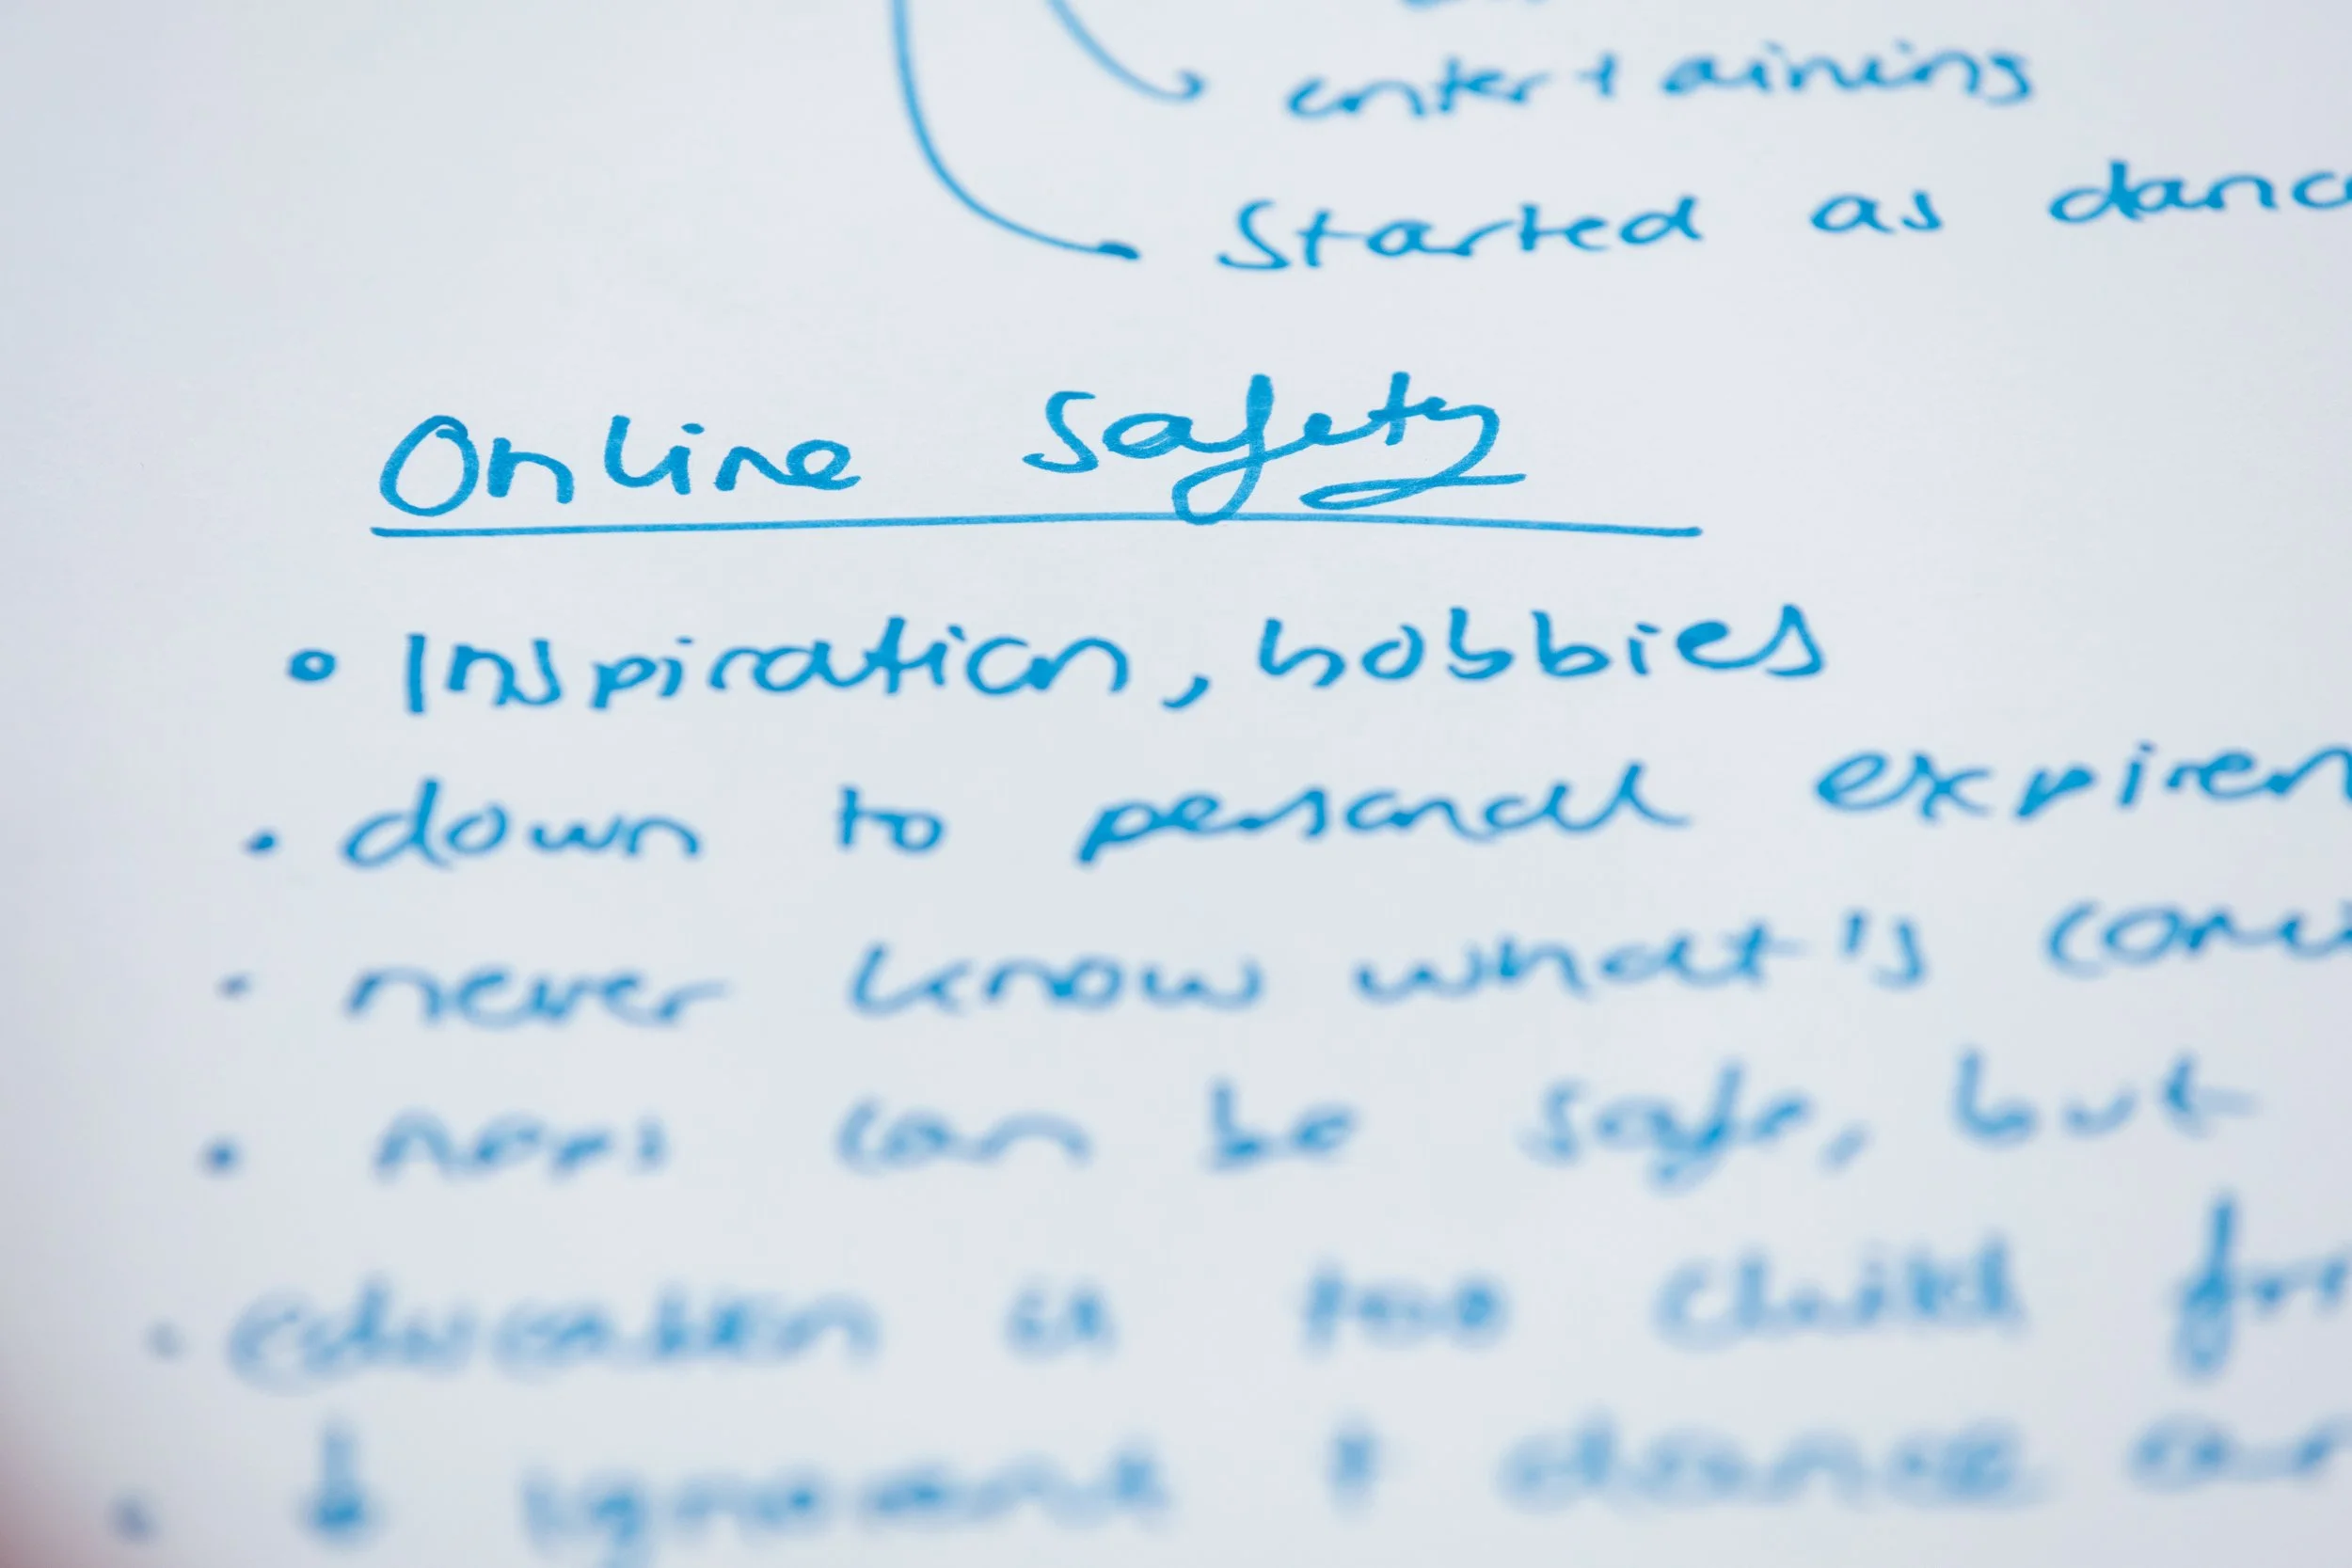 entertaining
Started as danc
Online Safety
• Inspiration, hobbies
• down to personal expiren
• never know what's comi
• can be safe, but
• education is too child fri
• ignorant + dance